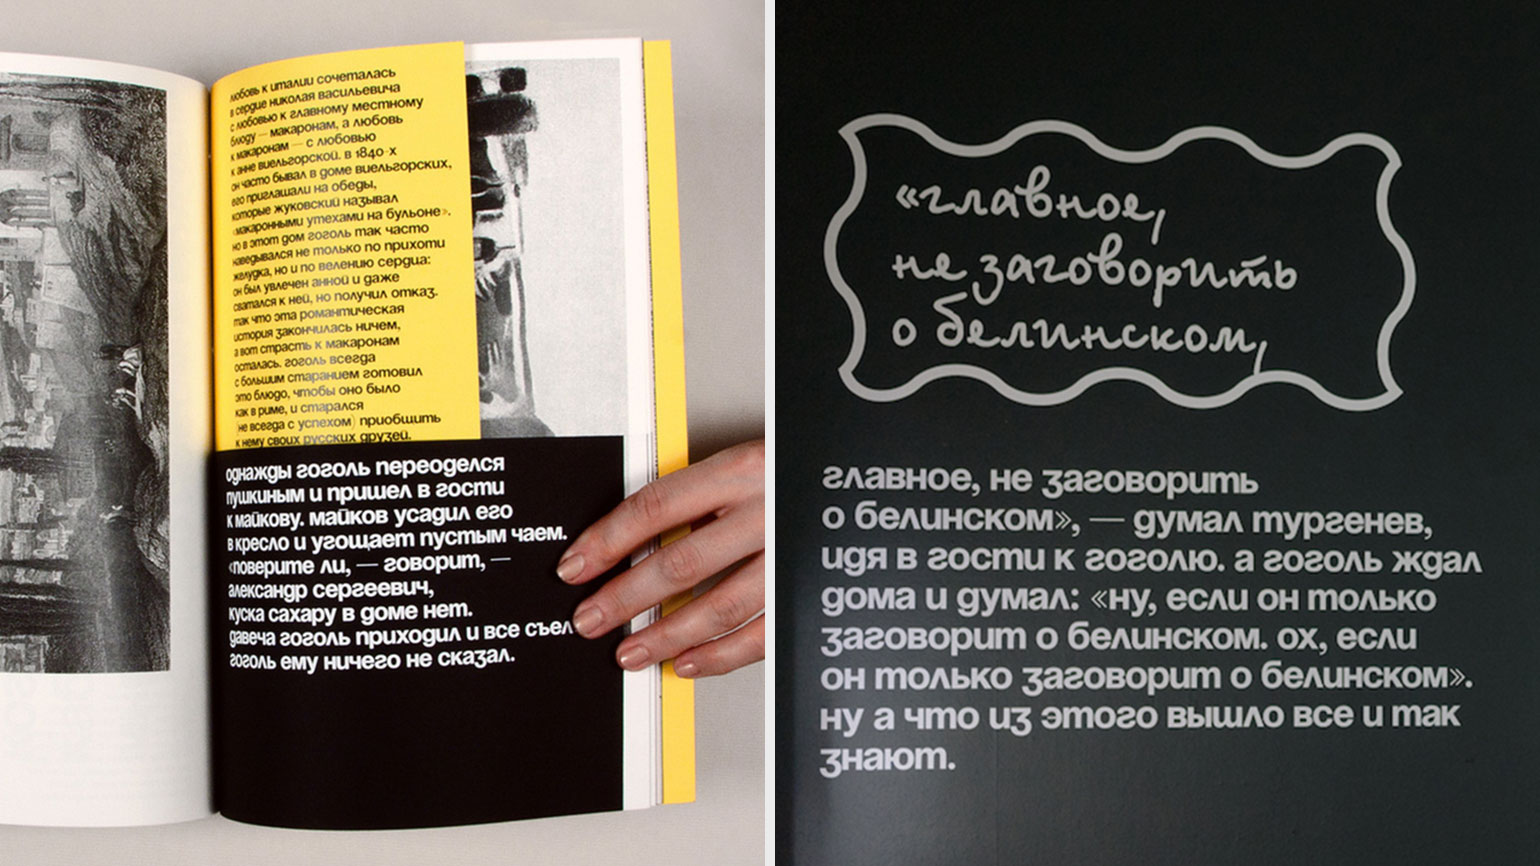 любовь к италии сочеталась
в сердце николая васильевича
с любовью к главному местному
блюду — макаронам, а любовь
к макаронам — с любовью
к анне виельгорской. в 1840-х
он часто бывал в доме виельгорских,
его приглашали на обеды,
которые жуковский называл
«макаронными утехами на бульоне».
но в этот дом гоголь так часто
наведывался не только по прихоти
желудка, но и по велению сердца:
он был увлечен анной и даже
сватался к ней, но получил отказ.
так что эта романтическая
история закончилась ничем,
а вот страсть к макаронам
осталась. гоголь всегда
с большим старанием готовил
это блюдо, чтобы оно было
как в риме, и старался
(не всегда с успехом) приобщить
к нему своих русских друзей.
однажды гоголь переоделся
пушкиным и пришел в гости
к майкову. майков усадил его
в кресло и угощает пустым чаем.
«поверите ли, — говорит, —
александр сергеевич,
куска сахару в доме нет.
давеча гоголь приходил и все съел
гоголь ему ничего не сказал.
«главное,
не заговорить
о белинском,
главное, не заговорить
о белинском», — думал тургенев,
идя в гости к гоголю. а гоголь ждал
дома и думал: «ну, если он только
заговорит о белинском. ох, если
он только заговорит о белинском».
ну а что из этого вышло все и так
знают.